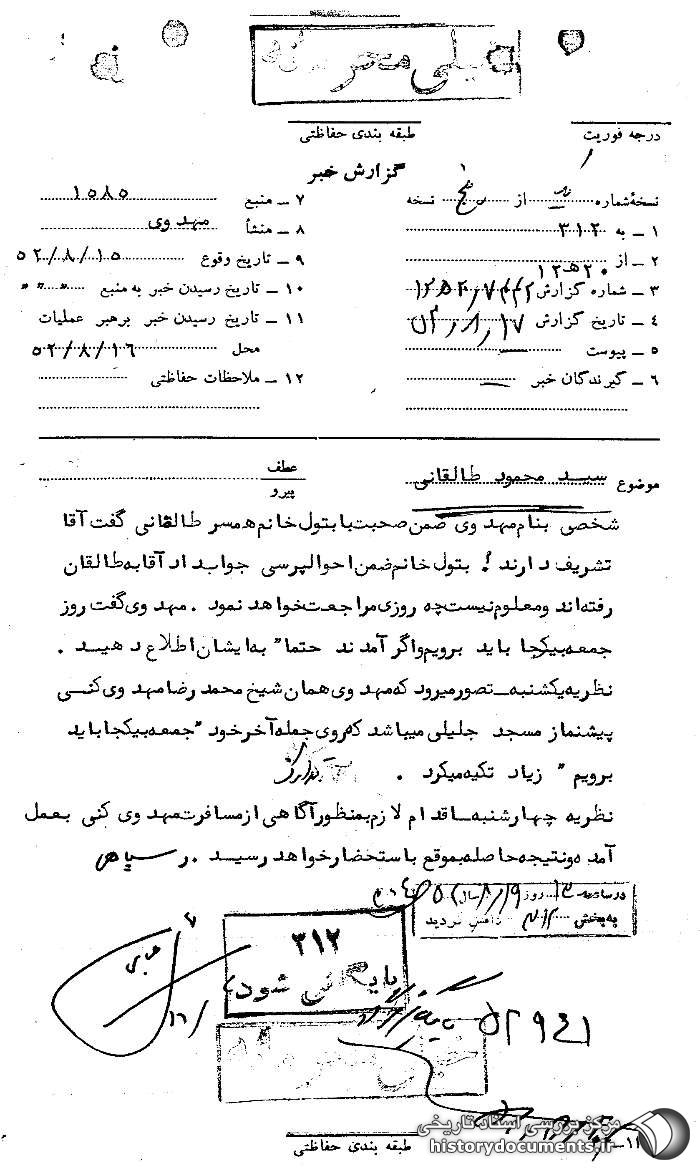 خیلی محرمانه
درجه فوریت
طبقه بندی حفاظتی
گزارش خبر
نسخهٔ شماره از پنج نسخه
۱ ـ به ۳۱۲
۲ ـ از ۲۰هـ۱۲
۳ ـ شماره گزارش
۴ ـ تاریخ گزارش ۱۷/۸/۵۲
۵ ـ پیوست
۶ ـ گیرندگان خبر
۷ ـ منبع ۱۵۸۵
۸ ـ منشأ مهدوی
۹ ـ تاریخ وقوع ۵۲/۸/۱۵
۱۰ ـ تاریخ رسیدن خبر به منبع " " "
۱۱ ـ تاریخ رسیدن خبر برهبر عملیات
محل ۵۲/۸/۱۶
۱۲ ـ ملاحظات حفاظتی
موضوع سید محمود طالقانی
عطف
پیرو
شخصی بنام مهدوی ضمن صحبت با بتول خانم همسر طالقانی گفت آقا
تشریف دارند؟ بتول خانم ضمن احوالپرسی جواب داد آقا به طالقان
رفته‌اند و معلوم نیست چه روزی مراجعت خواهد نمود . مهدوی گفت روز
جمعه بیکجا باید برویم و اگر آمدند حتما" به ایشان اطلاع دهید .
نظریه یکشنبه ـ تصور میرود که مهدوی همان شیخ محمد رضا مهدوی کنی
پیشنماز مسجد جلیلی میباشد که روی جمله آخر خود "جمعه بیکجا باید
برویم " زیاد تکیه میکرد .
نظریه چهارشنبه ـ اقدام لازم بمنظور آگاهی از مسافرت مهدوی کنی بعمل
آمده و نتیجه حاصله بموقع باستحضار خواهد رسید . ر سپاهی
در ساعت ۱۲ روز ۱۹/۸/ سال ۵۲
به بخش ۳۱۲ واصل گردید
۳۱۲
بایگانی شود
بایگانی
۵۲۹۴۱
۱۶/
خیلی محرمانه
طبقه بندی حفاظتی
۱۱ـ
مرکز بررسی اسناد تاریخی
historydocuments.ir